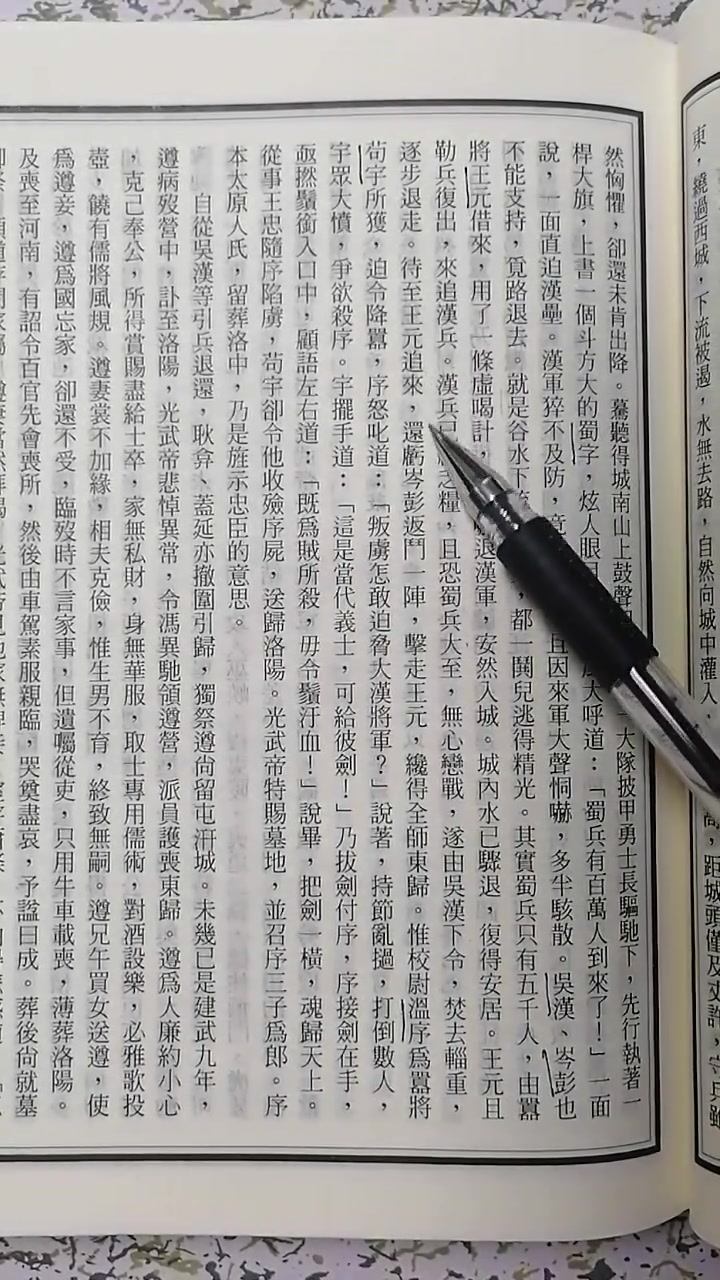 東，繞過西城，下流被遏，水無去路，自然向城中灌入，高，距城頭僅及丈許，守兵雖
然恟懼，卻還未肯出降。驀聽得城南山上鼓聲一大隊披甲勇士長驅馳下，先行執著一
桿大旗，上書一個斗方大的蜀字，炫人眼目大呼道：「蜀兵有百萬人到來了！」一面
說，一面直迫漢壘。漢軍猝不及防，竟且因來軍大聲恫嚇，多半駭散。吳漢、岑彭也
不能支持，覓路退去。就是谷水下流，都一鬨兒逃得精光。其實蜀兵只有五千人，由囂
將王元借來，用了一條虛喝計，退漢軍，安然入城。城內水已驟退，復得安居。王元且
勒兵復出，來追漢兵。漢兵已之糧，且恐蜀兵大至，無心戀戰，遂由吳漢下令，焚去輜重，
逐步退走。待至王元追來，還虧岑彭返鬥一陣，擊走王元，纔得全師東歸。惟校尉溫序爲囂將
苟宇所獲，迫令降囂，序怒叱道：「叛虜怎敢迫脅大漢將軍？」說著，持節亂撾，打倒數人，
宇眾大憤，爭欲殺序。宇擺手道：「這是當代義士，可給彼劍！」乃拔劍付序，序接劍在手，
亟撚鬚銜入口中，顧語左右道：「既爲賊所殺，毋令鬚汙血！」說畢，把劍一橫，魂歸天上。
從事王忠隨序陷虜，苟宇卻令他收殮序屍，送歸洛陽。光武帝特賜墓地，並召序三子爲郎。序
本太原人氏，留葬洛中，乃是旌示忠臣的意思。
自從吳漢等引兵退還，耿弇、蓋延亦撤圍引歸，獨祭遵尙留屯汧城。未幾已是建武九年，
遵病歿營中，訃至洛陽，光武帝悲悼異常，令馮異馳領遵營，派員護喪東歸。遵爲人廉約小心
，克己奉公，所得賞賜盡給士卒，家無私財，身無華服，取士專用儒術，對酒設樂，必雅歌投
壺，饒有儒將風規。遵妻裳不加緣，相夫克儉，惟生男不育，終致無嗣。遵兄午買女送遵，使
爲遵妾，遵爲國忘家，卻還不受，臨歿時不言家事，但遺囑從吏，只用牛車載喪，薄葬洛陽。
及喪至河南，有詔令百官先會喪所，然後由車駕素服親臨，哭奠盡哀，予謚曰成。葬後尙就墓